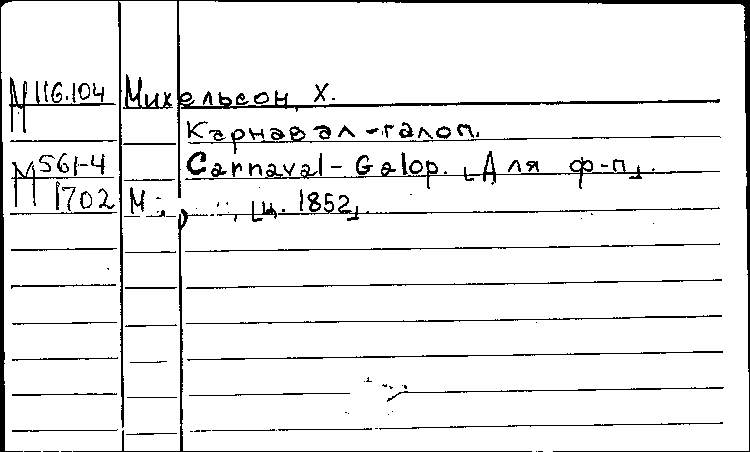 М 116.104 Михельсон, Х.
Карнавал-галоп.
М 561-4 Carnaval-Galop. [Для ф-п].
1702 М [ц. 1852].